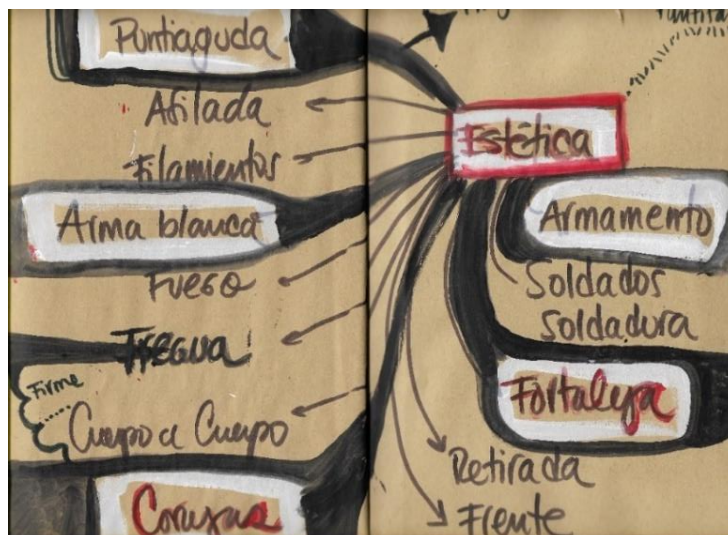 Puntiaguda
Afilada
Filamientos
Arma blanca
Fuego
Tregua
Firme
Cuerpo a Cuerpo
Estética
Armamento
Soldados
Soldadura
Fortaleza
Retirada
Frente